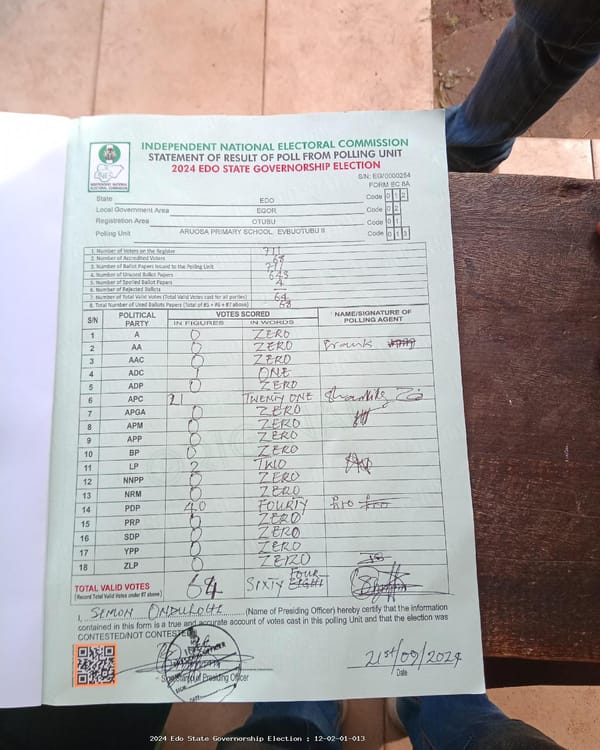 INDEPENDENT NATIONAL ELECTORAL COMMISSION
STATEMENT OF RESULT OF POLL FROM POLLING UNIT
2024 EDO STATE GOVERNORSHIP ELECTION
S/N: EG/0000254
FORM EC 8A
INDEPENDENT NATIONAL ELECTORAL COMMISSION
State EDO Code 0 1 2
Local Government Area EGOR Code 0 2
Registration Area OTUBU Code 0 1
Polling Unit ARUOSA PRIMARY SCHOOL, EVBUOTUBU II Code 0 1 3
1. Number of Voters on the Register 711
2. Number of Accredited Voters 68
3. Number of Ballot Papers Issued to the Polling Unit 711
4. Number of Unused Ballot Papers 643
5. Number of Spoiled Ballot Papers 4
6. Number of Rejected Ballots
7. Number of Total Valid Votes (Total Valid Votes cast for all parties) 64
8. Total Number of Used Ballots Papers (Total of #5 + #6 + #7 above) 68
S/N POLITICAL PARTY VOTES SCORED NAME/SIGNATURE OF POLLING AGENT
IN FIGURES IN WORDS
1 A 0 ZERO
2 AA 0 ZERO
3 AAC 0 ZERO
4 ADC 1 ONE
5 ADP 0 ZERO
6 APC 21 TWENTY ONE
7 APGA 0 ZERO
8 APM 0 ZERO
9 APP 0 ZERO
10 BP 0 ZERO
11 LP 2 TWO
12 NNPP 0 ZERO
13 NRM 0 ZERO
14 PDP 40 FOURTY
15 PRP 0 ZERO
16 SDP 0 ZERO
17 YPP 0 ZERO
18 ZLP 0 ZERO
TOTAL VALID VOTES 64 SIXTY FOUR
(Record Total Valid Votes under #7 above)
I, SIMON (Name of Presiding Officer) hereby certify that the information
contained in this form is a true and accurate account of votes cast in this polling Unit and that the election was
CONTESTED/NOT CONTESTED
21st/09/2024
Signature of Presiding Officer Date
2024 Edo State Governorship Election : 12-02-01-013